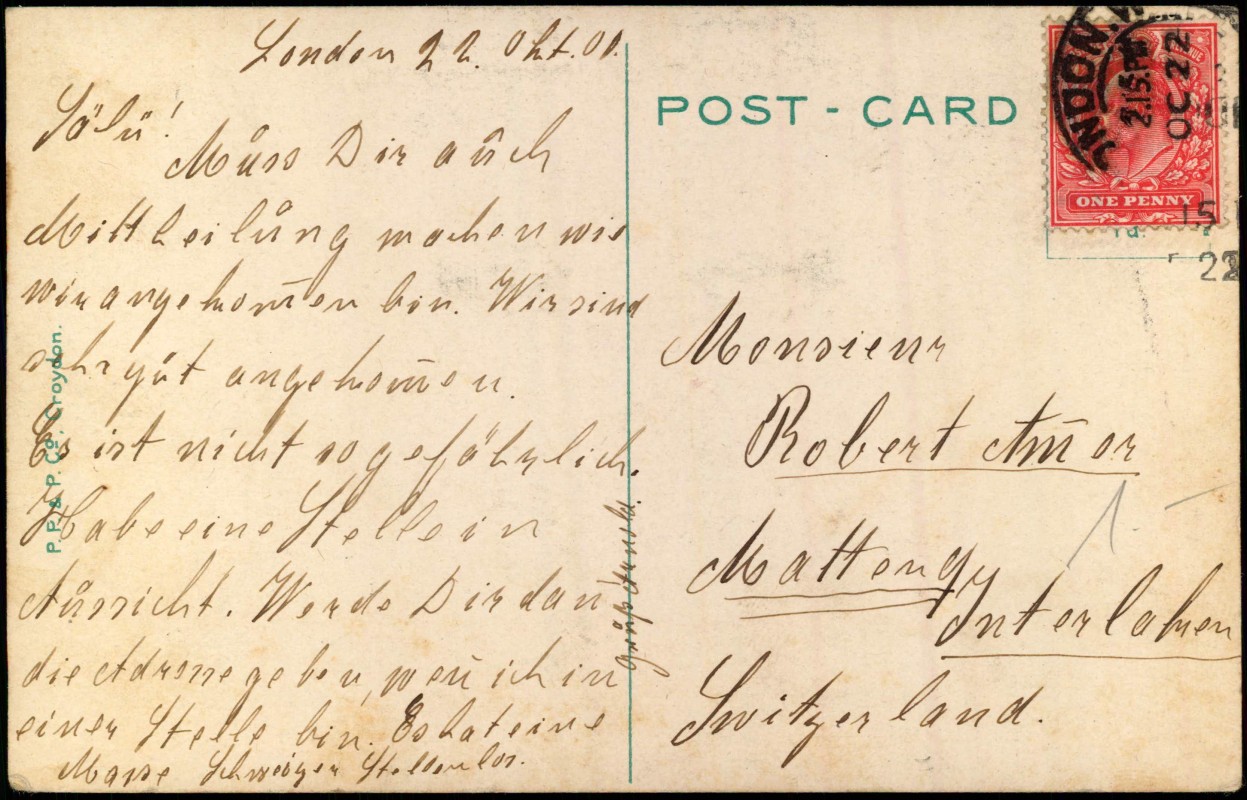 London 22. Okt. 00.
Sälü!
Müss Dir aüch
Mittheilüng machen wie
wir angekom̄en bin. Wir sind
sehr güt angekom̄en.
Es ist nicht so gefährlich.
Habe eine Stelle in
Aüssicht. Werde Dir dan̄
die Adresse geben, wen̄ ich in
einer Stelle bin. Es hat eine
Masse Schweizer Stellenlos.
P.P.& P. Co, Croydon.
POST - CARD
LONDON. W
2.15. PM
OC 22
REVENUE
ONE PENNY
15
22
Monsieur
Robert Am̄er
Matteng
Interlaken
Switzerland.